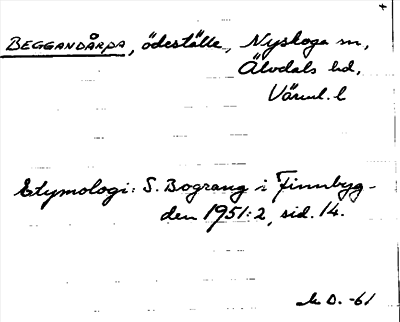 BEGGANDÅRPA, ödeställe, Nyskoga sn,
Älvdals hd,
Värml. l
Etymologi: S. Bograng i Finnbyg-
den 1951:2, sid. 14.
D. -61